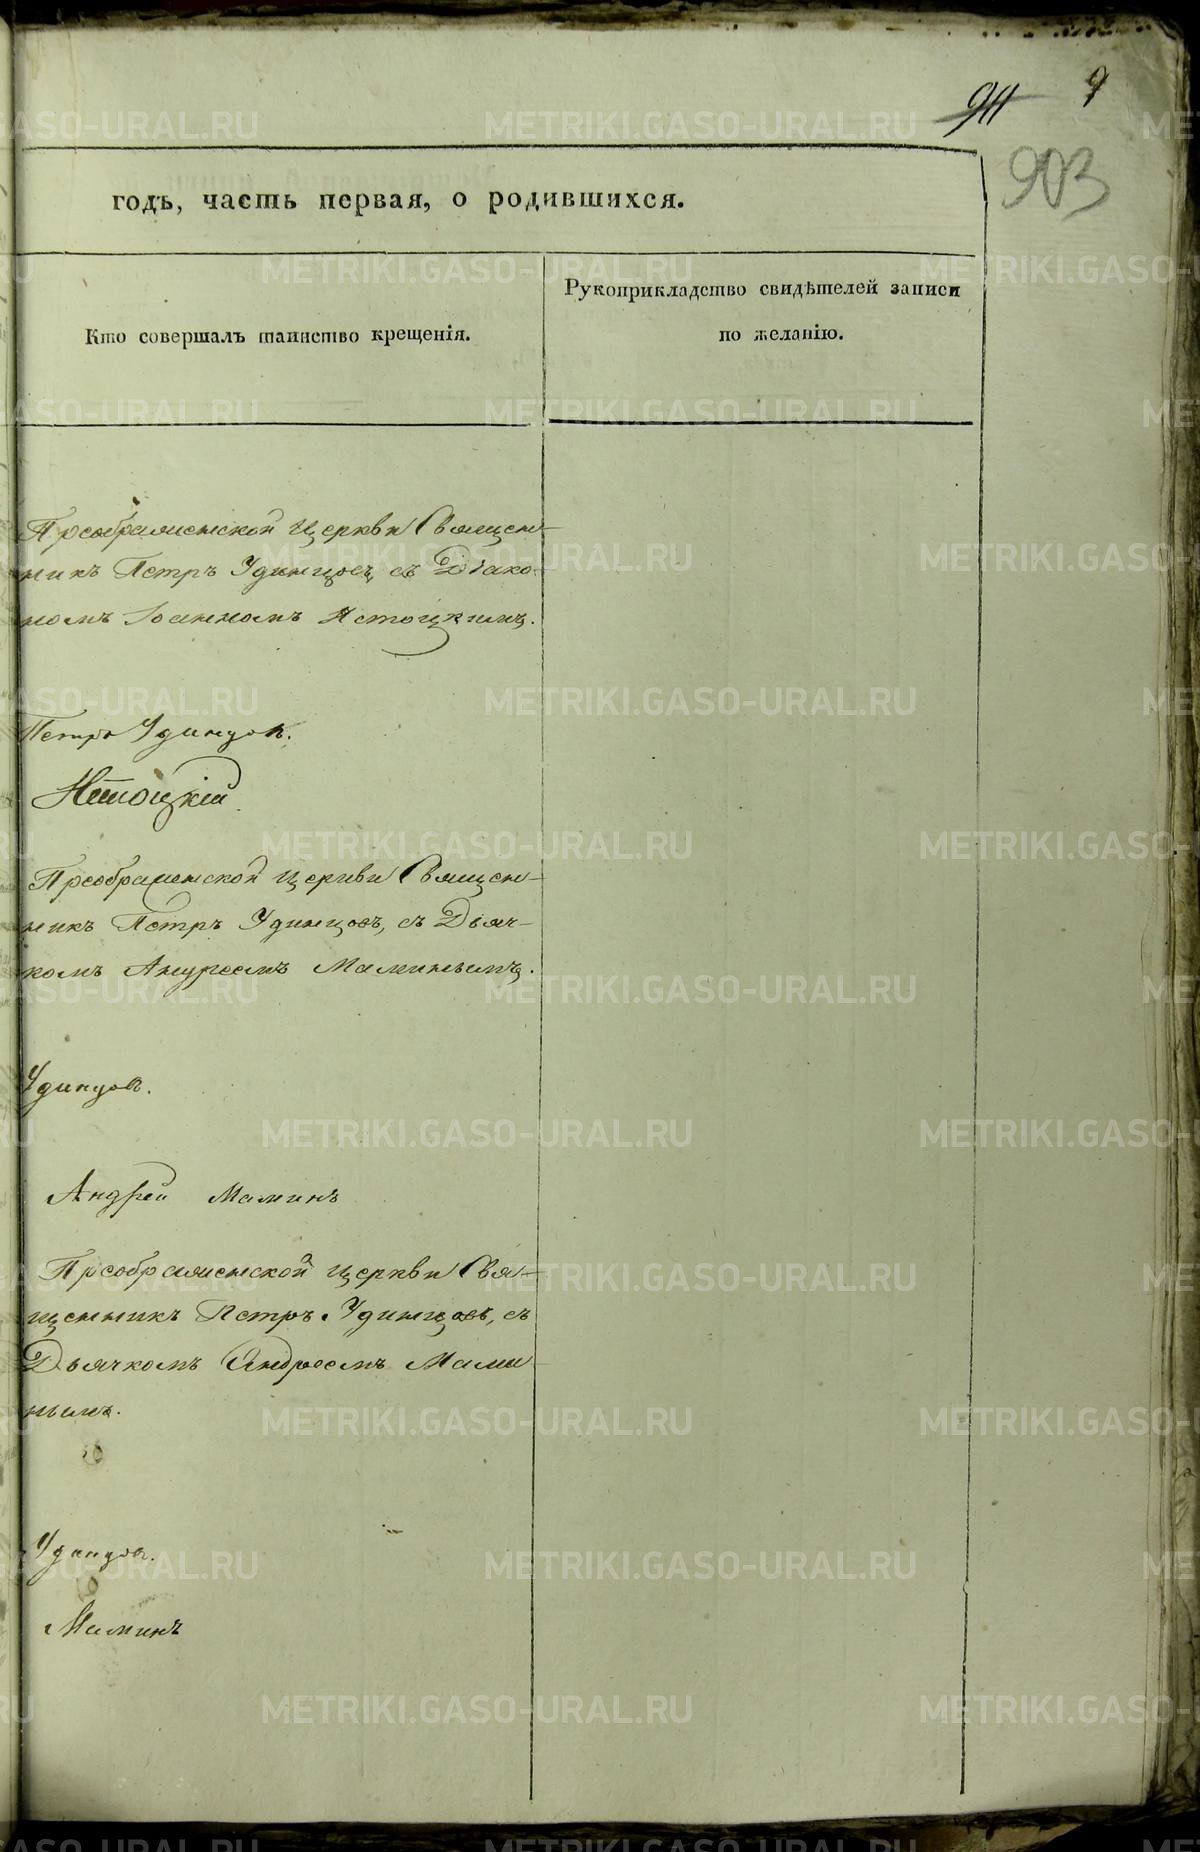 9
903
годъ, часть первая, о родившихся.
Кто совершалъ таинство крещенія.
Рукоприкладство свидѣтелей записи
по желанію.
Преображенской Церкви Священ-
никъ Петръ Удинцовъ, съ Діако-
номъ Іоанномъ Нетоцкимъ.
Петръ Удинцовъ.
Нетоцкій
Преображенской Церкви Священ-
никъ Петръ Удинцовъ, съ Дьяч-
комъ Андреемъ Маминымъ.
Удинцовъ.
Андрей Маминъ
Преображенской Церкви Свя-
щенникъ Петръ Удинцовъ, съ
Дьячкомъ Андреемъ Мами-
нымъ.
Удинцовъ.
Маминъ
METRIKI.GASO-URAL.RU